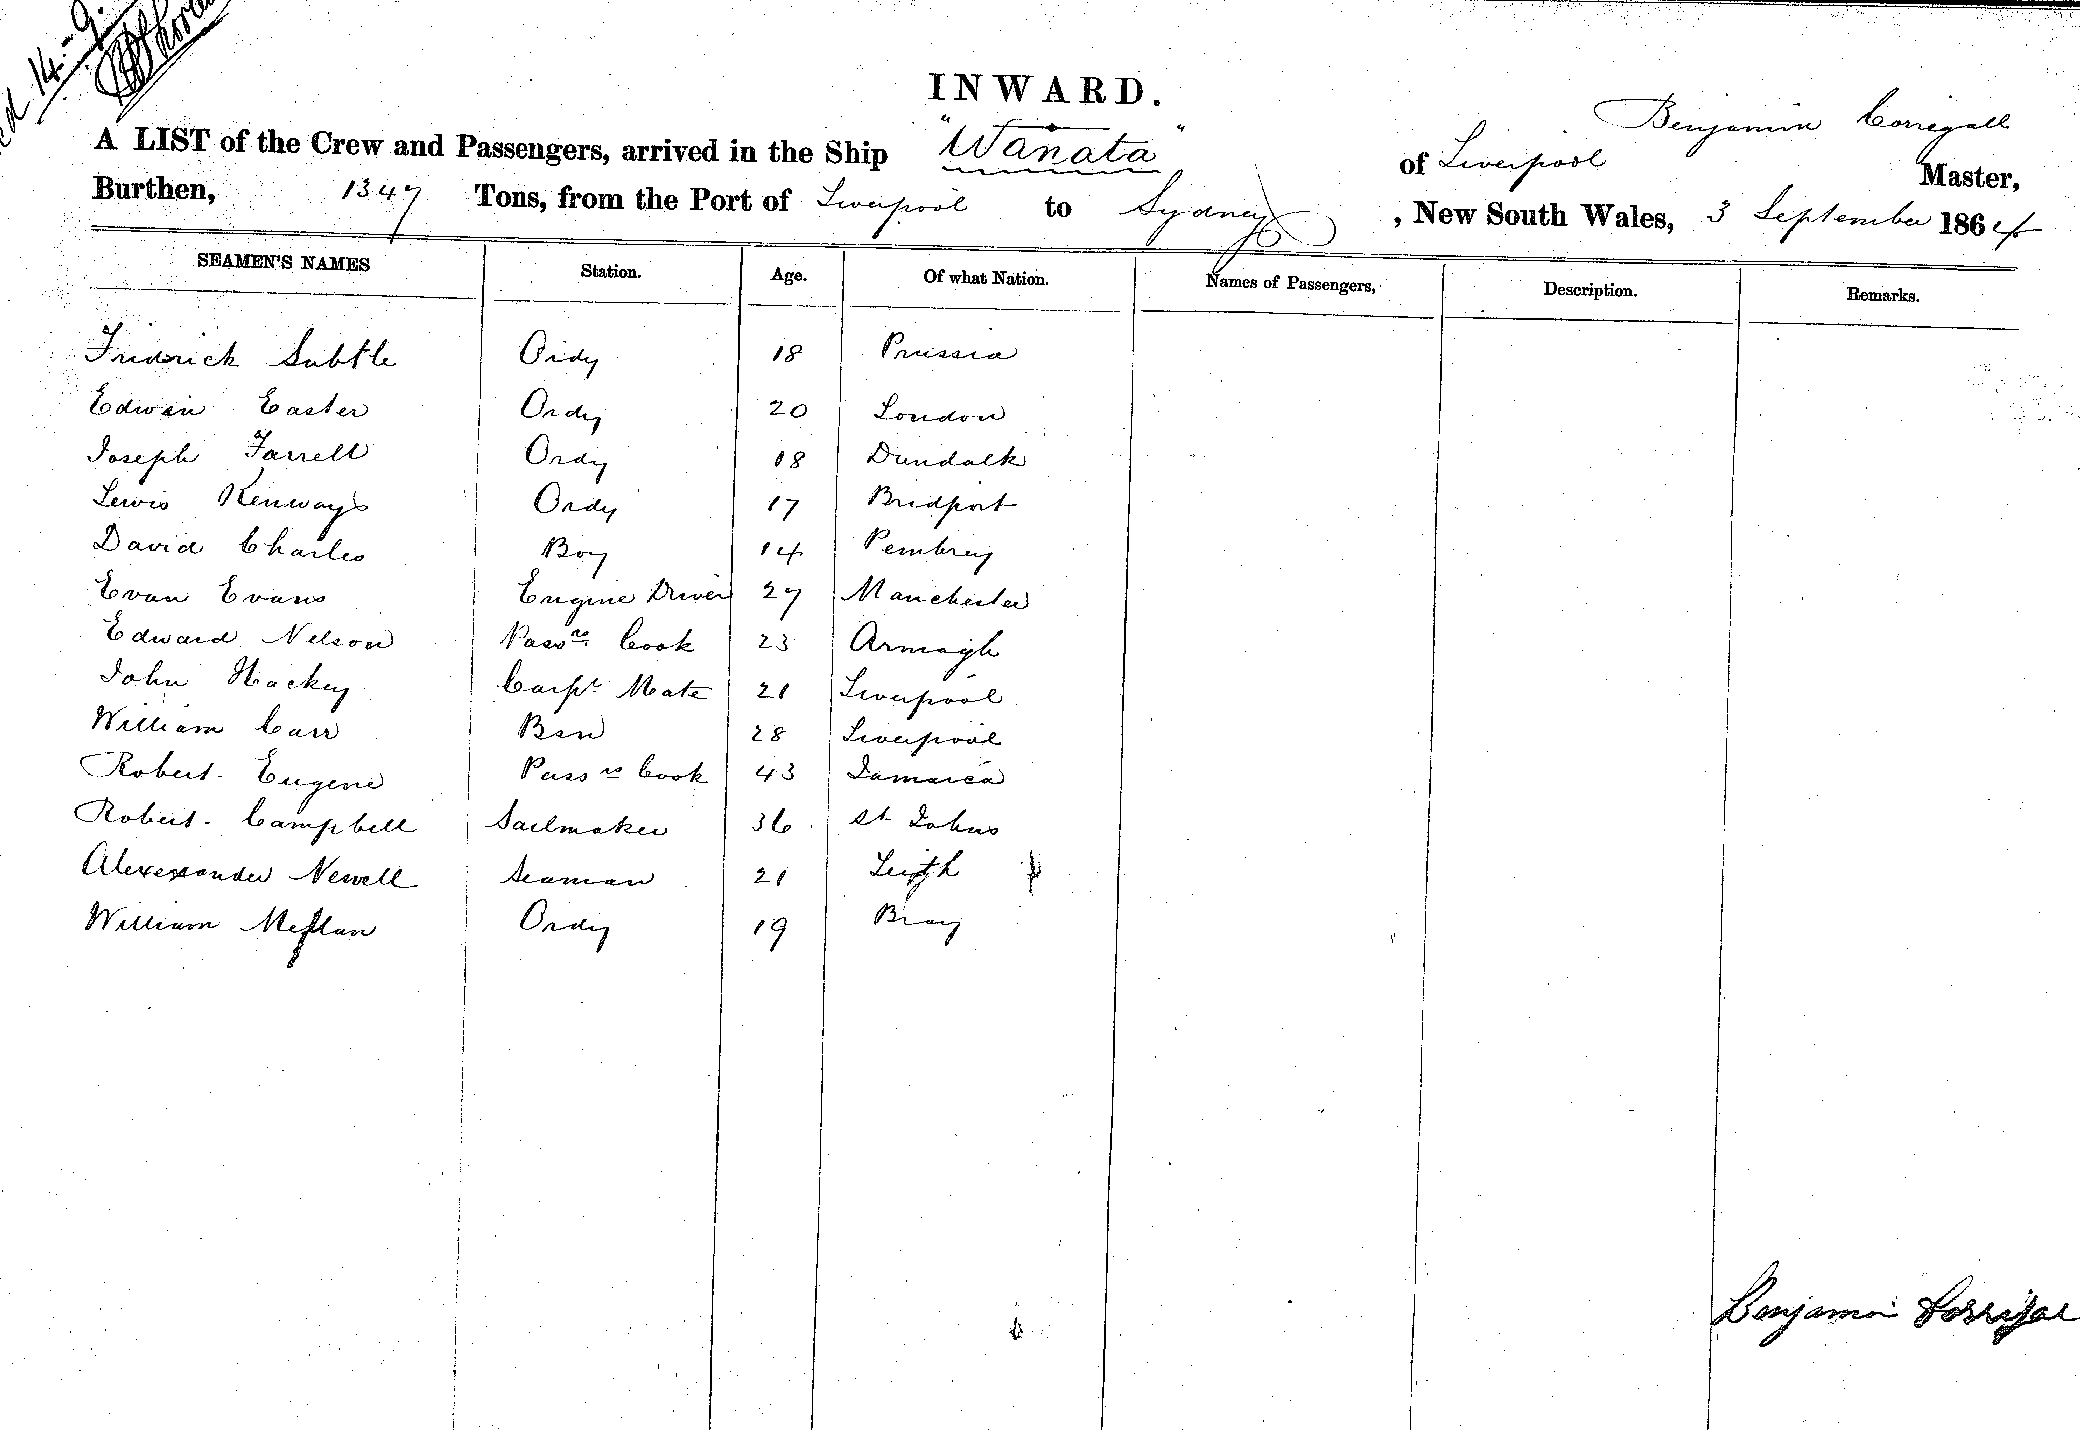 14-9
INWARD.
Benjamin Corrigall
A LIST of the Crew and Passengers, arrived in the Ship "Wanata" of Liverpool Master,
Burthen, 1347 Tons, from the Port of Liverpool to Sydney , New South Wales, 3 September 1864
SEAMEN'S NAMES Station. Age. Of what Nation. Names of Passengers, Description. Remarks.
Fridrick Subtle Ordy 18 Prussia
Edwin Easter Ordy 20 London
Joseph Farrell Ordy 18 Dundalk
Lewis Kenways Ordy 17 Bridport
David Charles Boy 14 Pembrey
Evan Evans Engine Driver 27 Manchester
Edward Nelson Pass rs Cook 23 Armagh
John Hackey Carpt Mate 21 Liverpool
William Carr Bsn 28 Liverpool
Robert Eugene Pass rs Cook 43 Jamaica
Robert Campbell Sailmaker 36 St Johns
Alexexander Newell Seaman 21 Leith
William Ordy 19 Bray
Benjamin